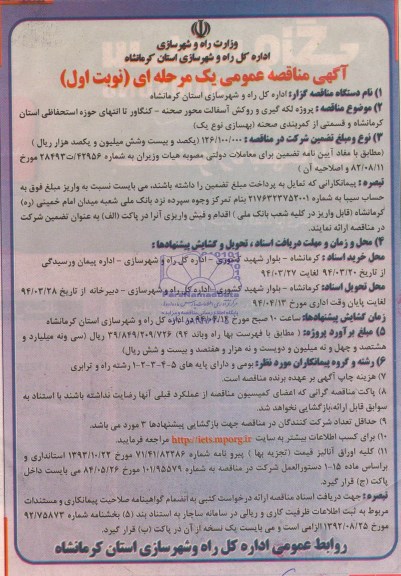 وزارت راه و شهرسازی
اداره کل راه و شهرسازی استان کرمانشاه
آگهی مناقصه عمومی یک مرحله ای (نوبت اول)
۱) نام دستگاه مناقصه گزار: اداره کل راه و شهرسازی استان کرمانشاه
۲) موضوع مناقصه : پروژه لکه گیری و روکش آسفالت محور صحنه - کنگاور تا انتهای حوزه استحفاظی استان
کرمانشاه و قسمتی از کمربندی صحنه (بهسازی نوع یک)
۳) نوع ومبلغ تضمین شرکت در مناقصه : ۱۲۶/۱۰۰/۰۰۰ (یکصد و بیست وشش میلیون و یکصد هزار ریال )
(مطابق با مفاد آیین نامه تضمین برای معاملات دولتی مصوبه هیات وزیران به شماره ۴۲۹۵۶/ت۲۸۴۹۳ مورخ
۸۲/۰۸/۱۱ و اصلاحیه آن )
تبصره : پیمانکارانی که تمایل به پرداخت مبلغ تضمین را داشته باشند، می بایست نسبت به واریز مبلغ فوق به
حساب سیبا به شماره ۲۱۷۶۳۲۲۷۵۲۰۰۱ بنام تمرکز وجوه سپرده نزد بانک ملی شعبه میدان امام خمینی (ره)
کرمانشاه (قابل واریز در کلیه شعب بانک ملی ) اقدام و فیش واریزی آنرا در پاکت (الف) به عنوان تضمین شرکت
در مناقصه ارائه نمایند.
۴) محل و زمان و مهلت دریافت اسناد ، تحویل و گشایش پیشنهادها :
محل خرید اسناد : کرمانشاه - بلوار شهید کشوری - اداره کل راه و شهرسازی - اداره پیمان ورسیدگی
از تاریخ ۹۴/۰۳/۲۰ لغایت ۹۴/۰۳/۲۷
محل تحویل اسناد: کرمانشاه - بلوار شهید کشوری - اداره کل راه و شهرسازی - دبیرخانه از تاریخ ۹۴/۰۳/۲۸
لغایت پایان وقت اداری مورخ ۹۴/۰۴/۱۳
زمان گشایش پیشنهادها: ساعت ۱۰ صبح مورخ ۹۴/۰۴/۱۴ در اداره کل راه و شهرسازی استان کرمانشاه
۵) مبلغ برآورد پروژه: ( مطابق با فهرست بها راه وباند ۹۴) ۳۹/۸۴۹/۲۰۹/۷۲۶ ریال (سی ونه میلیارد و
هشتصد و چهل و نه میلیون و دویست و نه هزار و هفتصد و بیست و شش ریال)
۶) رشته و گروه پیمانکاران مورد نظر: بومی و دارای پایه های ۵-۴-۳-۲-۱ رشته راه و ترابری
۷) هزینه چاپ آگهی بر عهده برنده مناقصه است.
۸) پاکت مناقصه گرانی که اعضای کمیسیون مناقصه از عملکرد قبلی آنها رضایت نداشته باشند با استناد به
سوابق قابل ارائه،بازگشایی نخواهد شد.
۹) حداقل تعداد شرکت کنندگان در مناقصه جهت بازگشایی پیشنهادها ۳ مورد می باشد.
۱۰) برای کسب اطلاعات بیشتر به سایت http://iets.mporg.ir مراجعه فرمایید.
۱۱) کلیه اوراق آنالیز قیمت (تجزیه بها ) پیرو نامه شماره ۷۱/۴۱/۸۲۳۸۶ مورخ ۱۳۹۳/۱۰/۲۲ استانداری و
براساس ماده ۱۵-۱ دستورالعمل شرکت در مناقصه به شماره ۱۰۱/۹۵۵۷۹ مورخ ۸۴/۰۵/۲۶ می بایست داخل
پاکت (ج) قرار گیرد.
تبصره: جهت دریافت اسناد مناقصه ارائه درخواست کتبی به انضمام گواهینامه صلاحیت پیمانکاری و مستندات
مربوط به ثبت اطلاعات ظرفیت کاری و ریالی در سامانه ساجار به استناد بند (۵) بخشنامه شماره ۹۲/۷۵۸۷۳
مورخ ۱۳۹۲/۰۸/۲۵ الزامی است و می بایست یک نسخه از آن در پاکت (ب) قرار گیرد.
روابط عمومی اداره کل راه وشهرسازی استان کرمانشاه